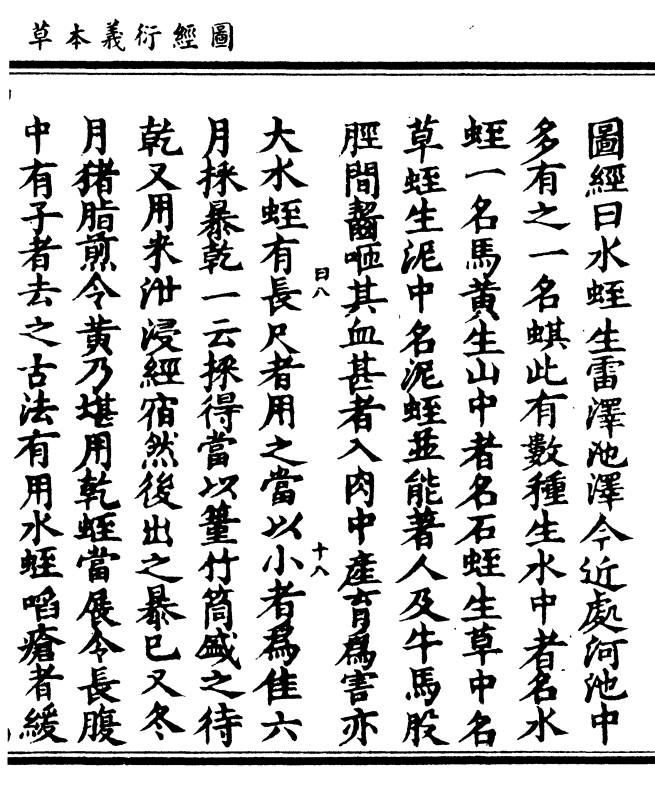 圖經衍義本草
圖經曰水蛭生雷澤池澤今近處河池中
多有之一名蜞此有數種生水中者名水
蛭一名馬黃生山中者名石蛭生草中名
草蛭生泥中名泥蛭並能著人及牛馬股
脛間齧咂其血甚者入肉中產育爲害亦
曰八
十八
大水蛭有長尺者用之當以小者爲佳六
月採暴乾一云採得當以䈽竹筒盛之待
乾又用米泔浸經宿然後出之暴已又冬
月猪脂煎令黃乃堪用乾蛭當展令長腹
中有子者去之古法有用水蛭啗瘡者緩